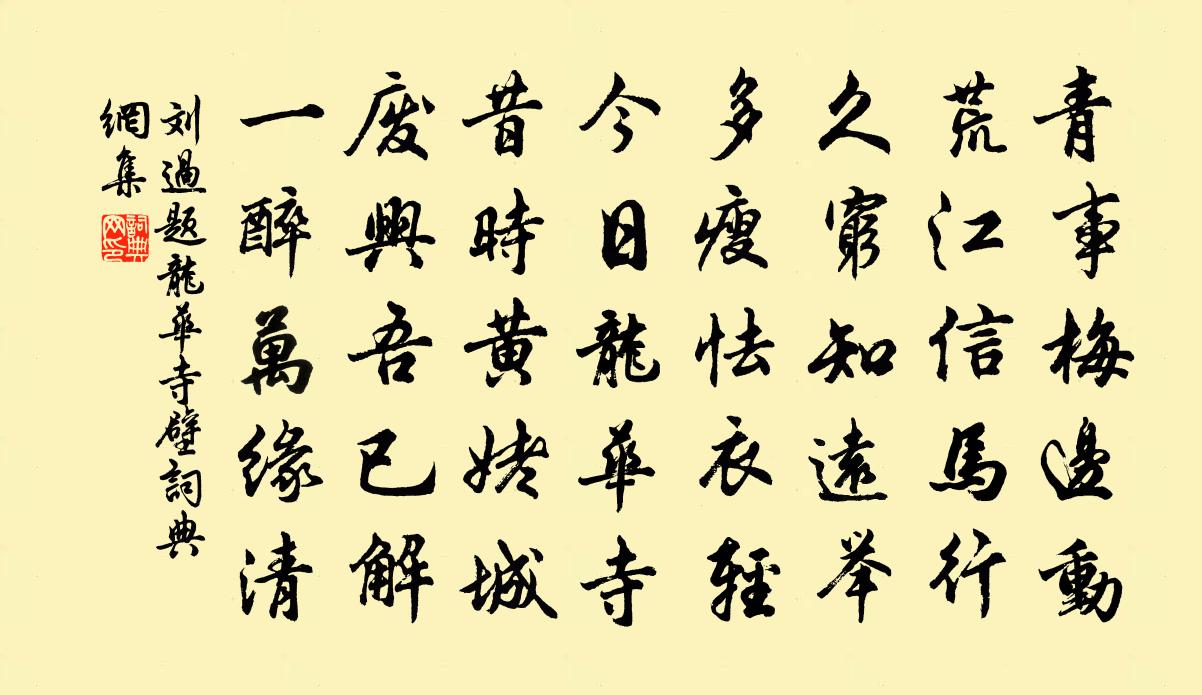 青事梅邊動
荒江信馬行
久窮知遠举
多瘦怯衣輕
今日龍華寺
昔時黄姥城
废興吾已解
一醉萬緣清
刘過題龍華寺壁詞典
網集
詞典
网印